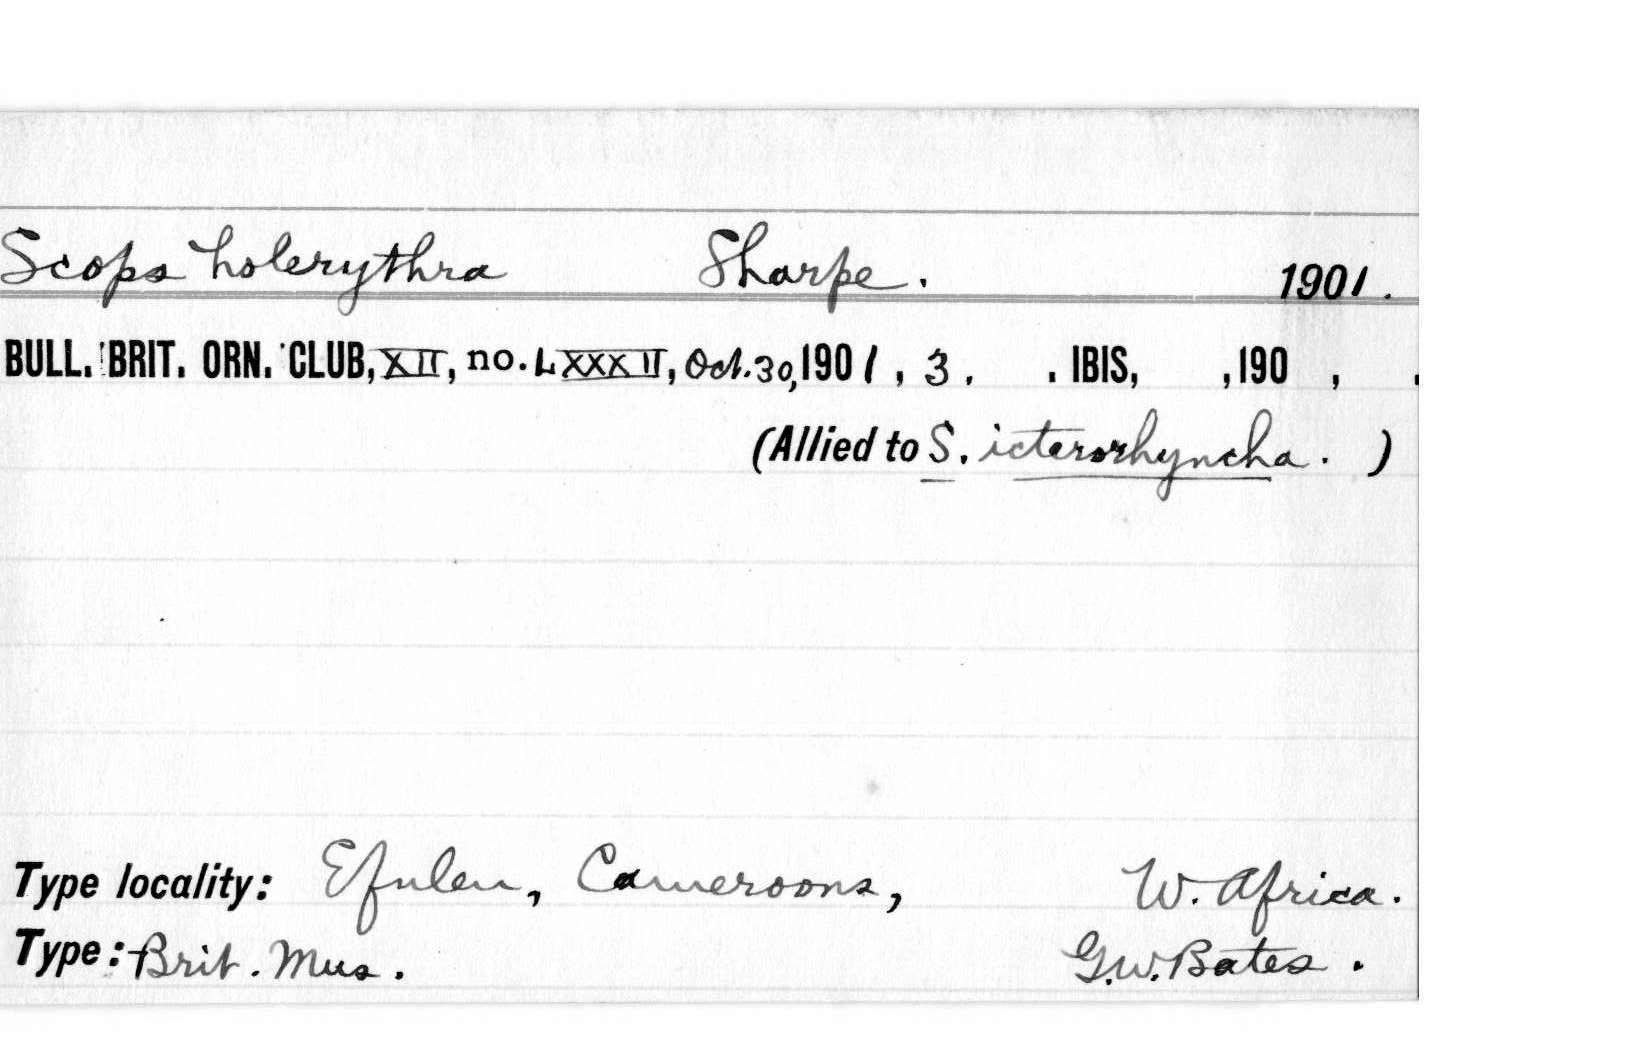 Scops holerythra Sharpe. 1901.
BULL. BRIT. ORN. CLUB, XII, no. LXXXII, Oct. 30, 1901, 3. . IBIS, , 190 , .
(Allied to S. icterorhyncha. )
Type locality: Efulen, Cameroons, W. Africa.
Type: Brit. Mus. G.W. Bates.